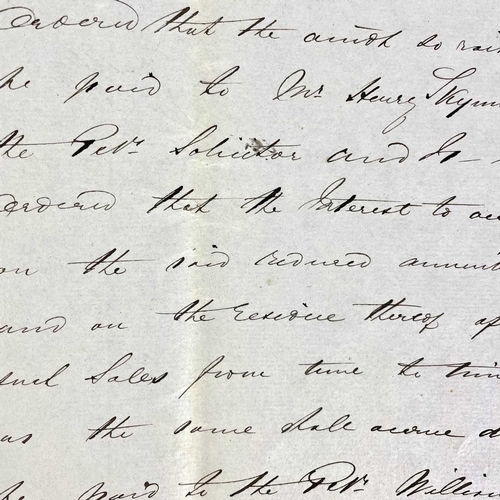 Ordered that the amot so rais
be paid to Mr Henry Skym
the Petrs Solicitor and It
Ordered that the Interest to ac
on the said reduced annuit
and on the residue thereof af
such Sales from time to tim
as the same shall accrue
be paid to the Petr William